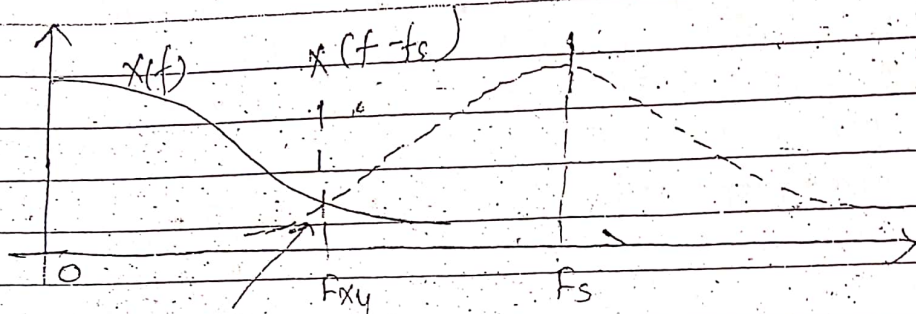 X(f) X(f-fs)
0 Fxy Fs